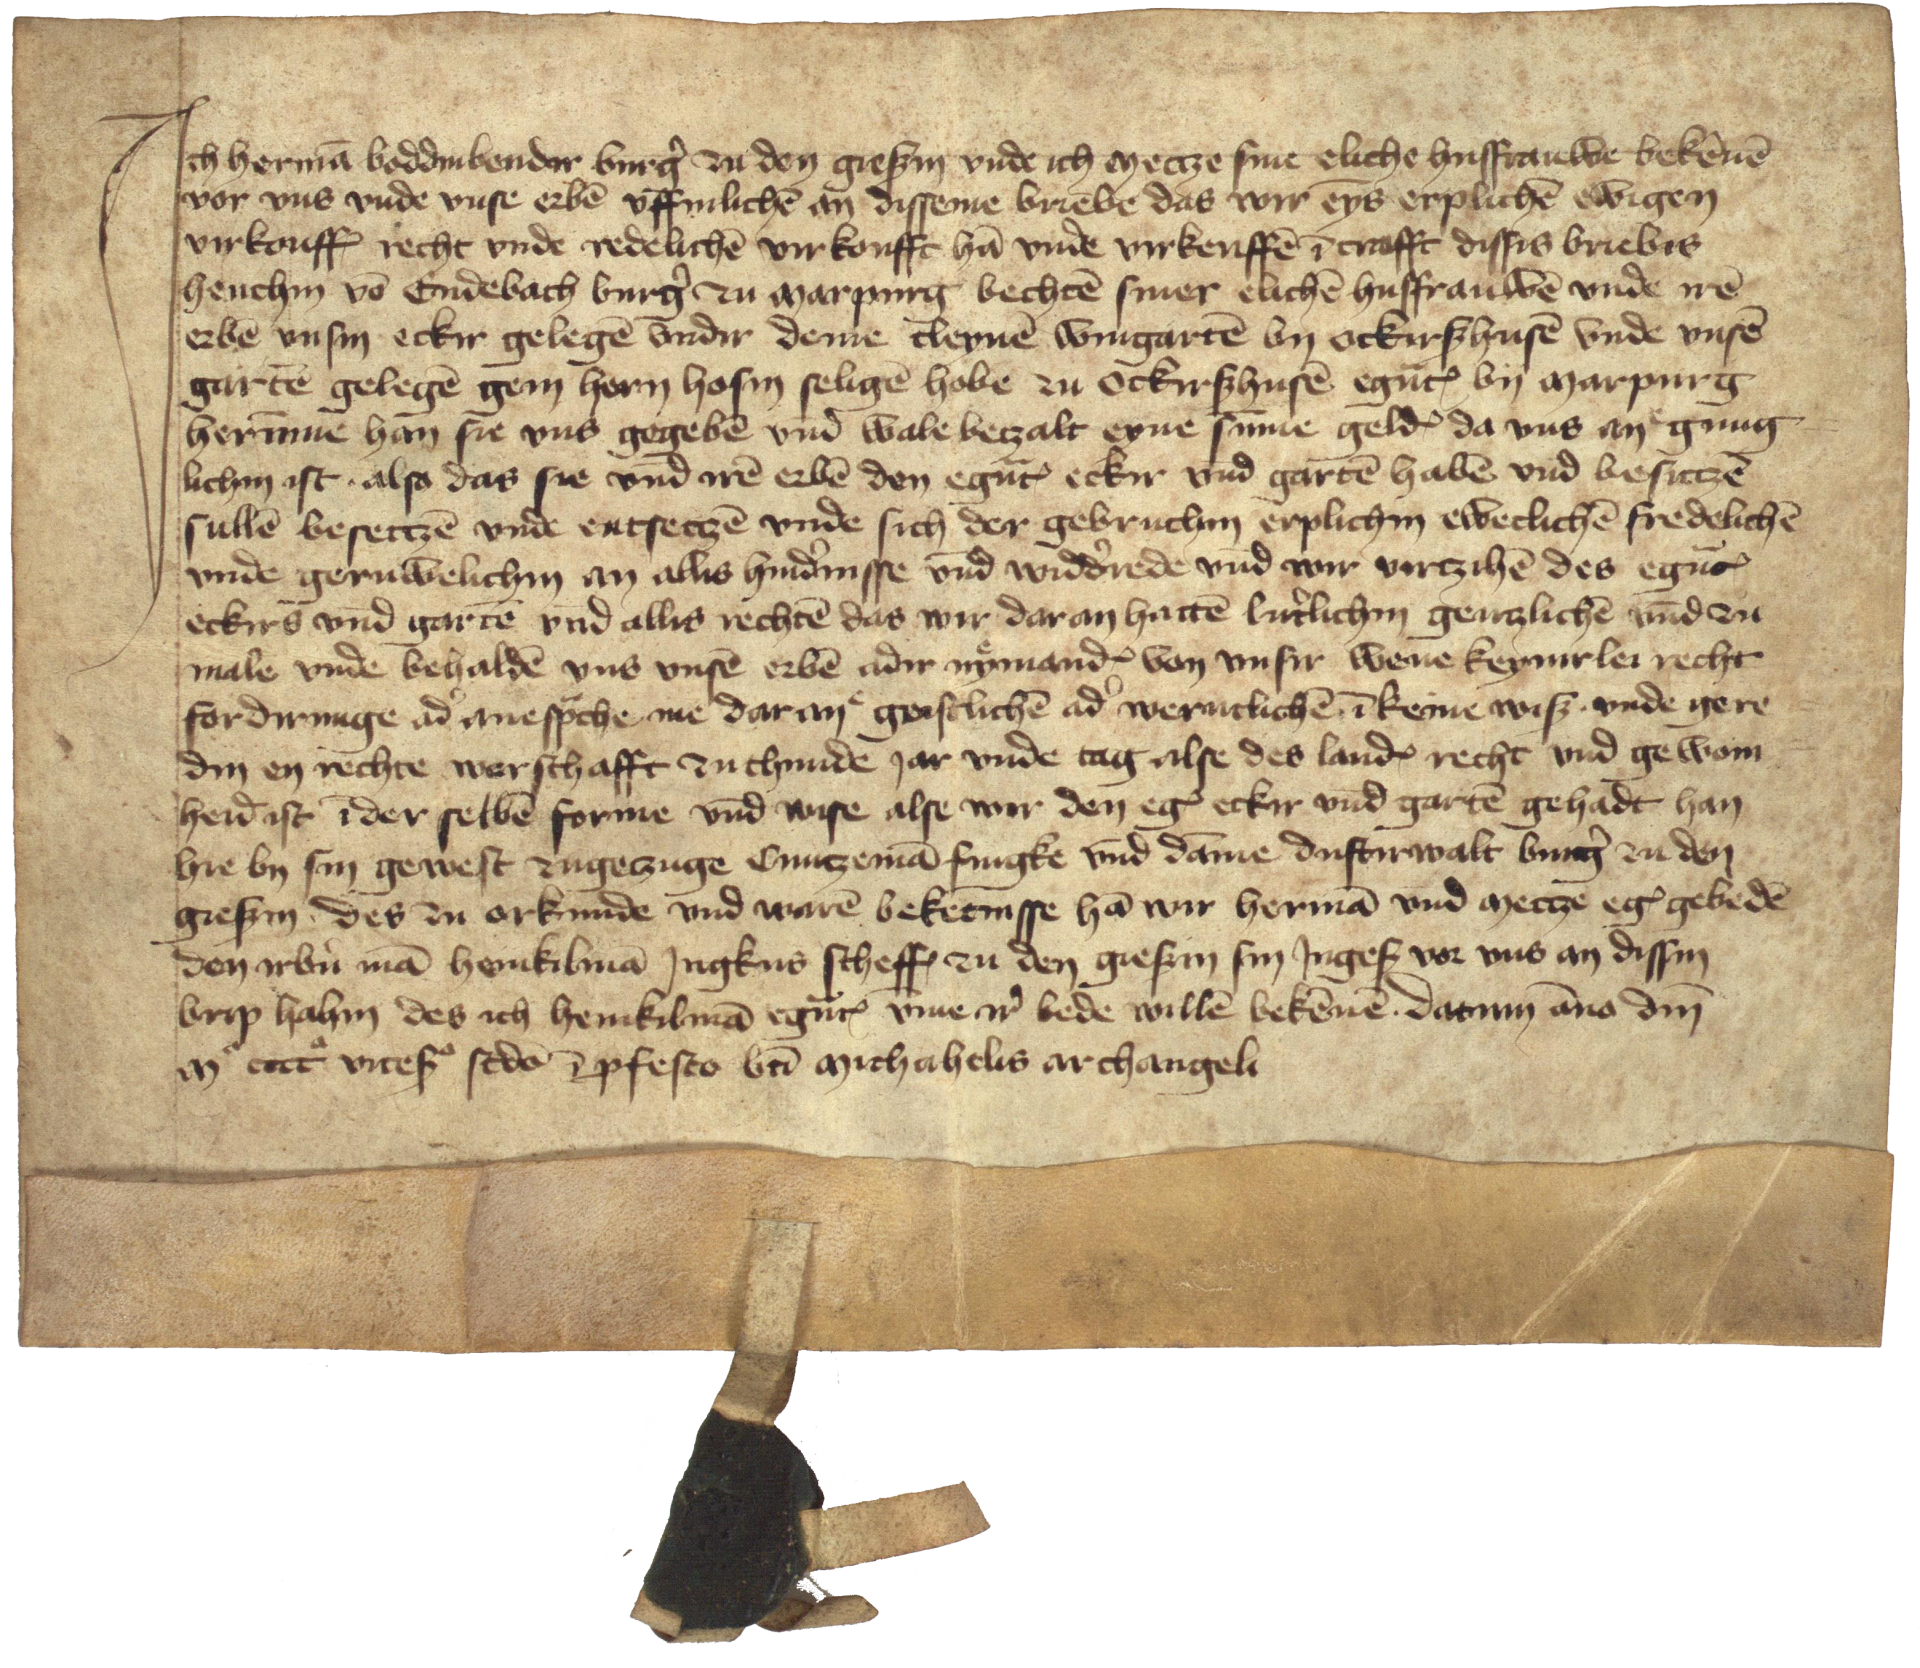 Ich hermā boddinbender burg̉ zu den gieſzin vnde ich Metze ſine eliche huſfrauwe bekēnē
vor vns vnde vnſe erbē vffinlichē an diſſeme briebe das wir eyns erplichē ewigen
virkouff recht vnde redelichē virkoufft hā vnde virkeuffē ī crafft diſſis briebis
henchin vō Endebach burg̉ zu Marpurg bechtē ſiner elichē huſfrauwē vnde irē
erbē vnſin eckir gelegē vndir deme cleynē wingartē by ockirſzhuſē vnde vnſē
gartē gelegē gein hern hoſin ſeligē hobe zu Ockirſzhuſē egūt by Marpurg
herūme han ſie vns gegebē vnd wale betzalt eyne ſūme geld da vns an gnug
lichin iſt · alſo das ſie vnd irē erbē den egūt eckir vnd gartē habē vnd beſitzē
ſullē beſetzē vnde entſetzē vnde ſich der gebruchin erplichin eweclichē fredelichē
vnde geruwelichin an allis hindniſſe vnd widdrede vnd wir virtzihē des egūt
eckirs vnd gartē vnd allis rechtē das wir daran hattē lutlichin gentzlichē vnd zu
male vnde behaldē vns vnſē erbē adir nymand von vnſir wene keynirlei recht
fordirunge ad aneſpche me daran geiſtlichē ad werntlichē ī keine wiſz · vnde gere
din en rechte werſchafft zuthunde jar vnde tag alſe des land recht vnd gewoin
heid iſt ī der ſelbē forme vnd wiſe alſe wir den eg eckir vnd gartē gehadt han
hie by ſin geweſt zugetzuge Cuntzemā fingke vnd dāme duſtirwalt burg̉ zu den
gieſzin · des zu orkunde vnd warē bekētniſſe hā wir hermā vnd Metze eg gebedē
den irbn mā heinkilmā Jngkus ſcheff zu den gieſzin ſin Jngeſ vor vns an diſſin
brip hahin des ich heinkilmā egūt vme ir bede willē bekēnē · datum āno dnī
Mº cccº viceſº ſcdō ī pfeſto btī Michahelis archangeli